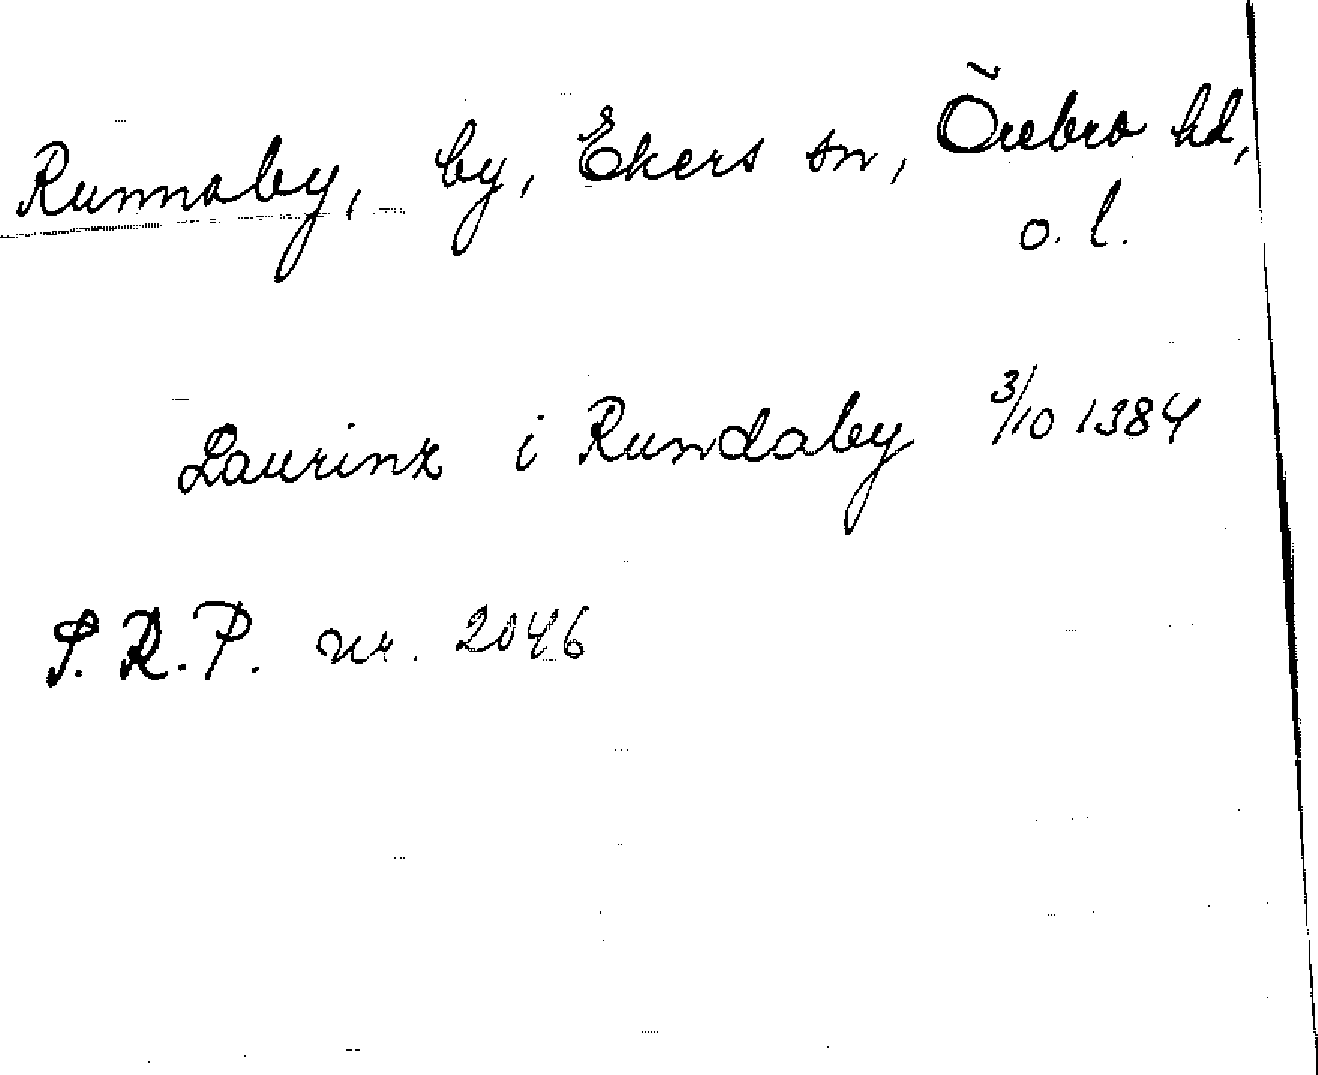 Runnaby, by, Ekers sn, Örebro hd,
ö. l.
Laurinz i Rundaby 3/10 1384
S.R.P. nr. 2046